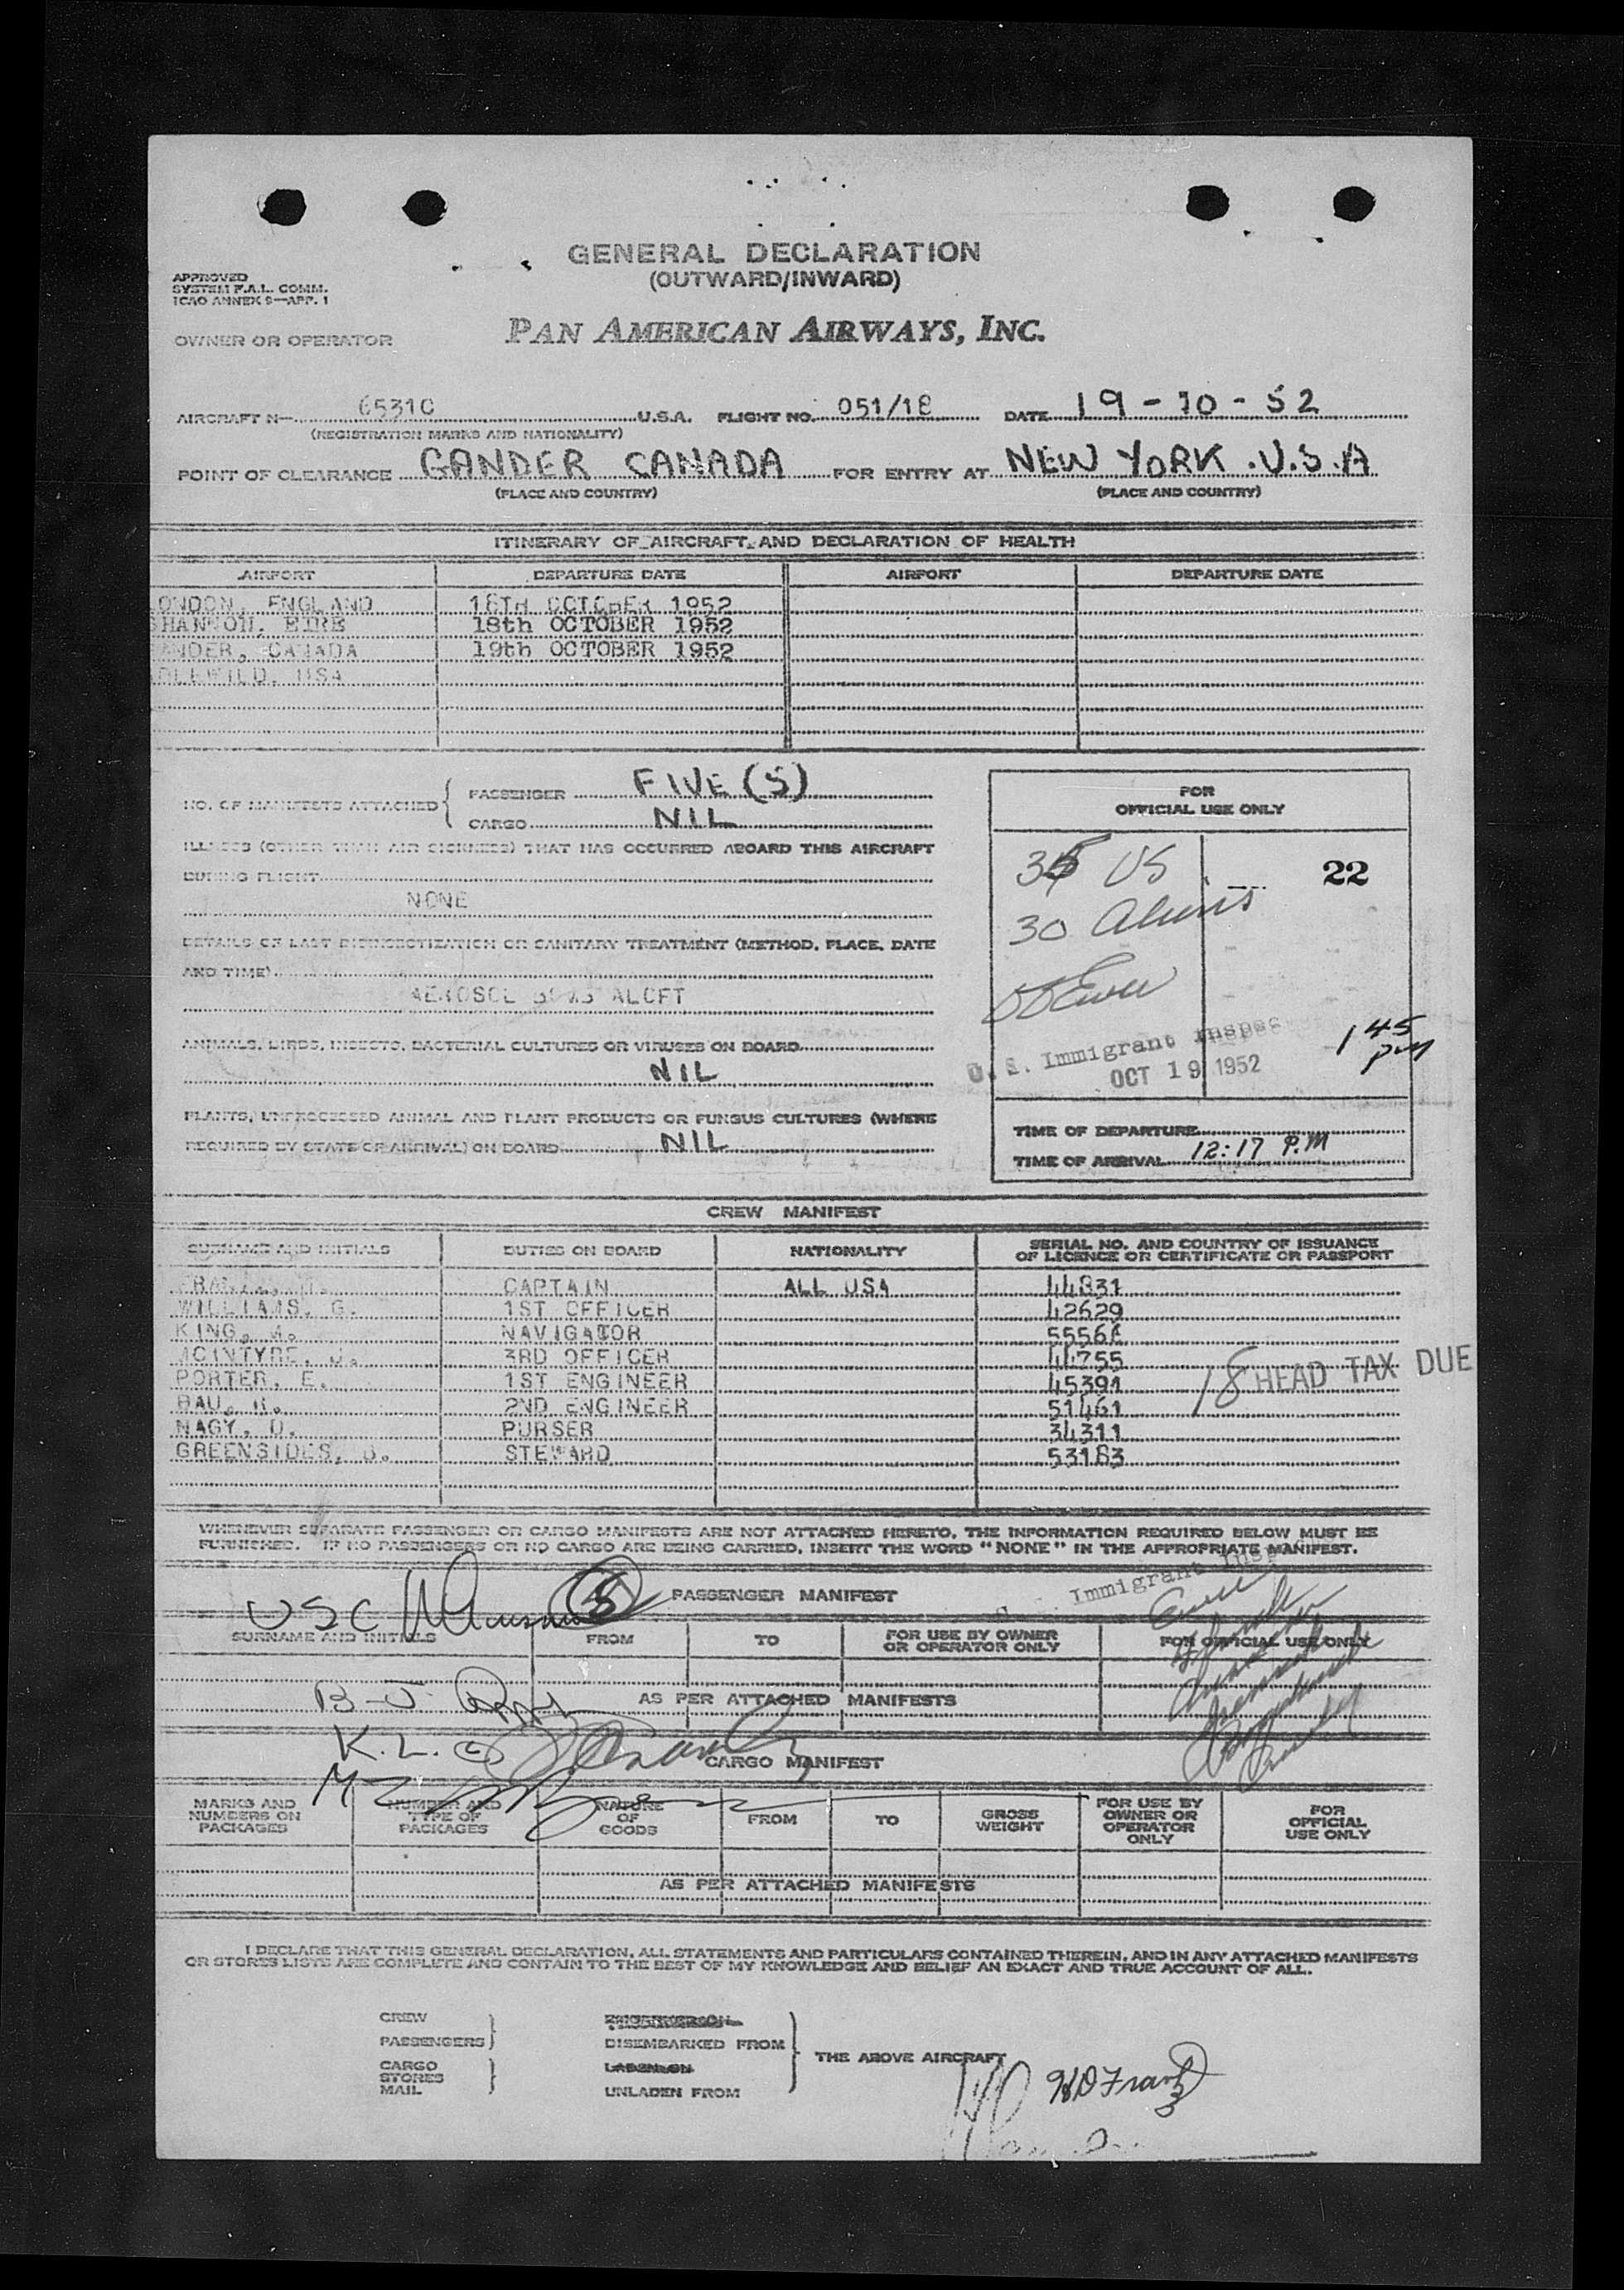 GENERAL DECLARATION
(OUTWARD/INWARD)
APPROVED
SYSTEM F.A.L. COMM.
ICAO ANNEX 9—APP. 1
OWNER OR OPERATOR PAN AMERICAN AIRWAYS, INC.
AIRCRAFT N— 65310 U.S.A. FLIGHT NO. 051/18 DATE 19-10-52
(REGISTRATION MARKS AND NATIONALITY)
POINT OF CLEARANCE GANDER CANADA FOR ENTRY AT NEW YORK . U.S.A
(PLACE AND COUNTRY) (PLACE AND COUNTRY)
ITINERARY OF AIRCRAFT, AND DECLARATION OF HEALTH
AIRPORT DEPARTURE DATE AIRPORT DEPARTURE DATE
ONDON, ENGLAND 18TH OCTOBER 1952
SHANNON, EIRE 18th OCTOBER 1952
ANDER, CANADA 19th OCTOBER 1952
IDLEWILD, USA
NO. OF MANIFESTS ATTACHED { PASSENGER FIVE (5)
CARGO NIL
ILLNESS (OTHER THAN AIR SICKNESS) THAT HAS OCCURRED ABOARD THIS AIRCRAFT
DURING FLIGHT
NONE
DETAILS OF LAST DISINSECTIZATION OR SANITARY TREATMENT (METHOD, PLACE, DATE
AND TIME)
AEROSOL BOMB ALOFT
ANIMALS, BIRDS, INSECTS, BACTERIAL CULTURES OR VIRUSES ON BOARD
NIL
PLANTS, UNPROCESSED ANIMAL AND PLANT PRODUCTS OR FUNGUS CULTURES (WHERE
REQUIRED BY STATE OF ARRIVAL) ON BOARD NIL
FOR
OFFICIAL USE ONLY
35 US
22
30 Aliens
U.S. Immigrant Inspec
OCT 19 1952
1 45
pm
TIME OF DEPARTURE
TIME OF ARRIVAL 12:17 P.M
CREW MANIFEST
SURNAME AND INITIALS DUTIES ON BOARD NATIONALITY SERIAL NO. AND COUNTRY OF ISSUANCE
OF LICENCE OR CERTIFICATE OR PASSPORT
CAPTAIN ALL USA 44831
WILLIAMS, G. 1ST OFFICER 42629
KING, NAVIGATOR
MCINTYRE, J. 3RD OFFICER 44755
PORTER, E. 1ST ENGINEER 45391
RAU, R. 2ND ENGINEER 51461
NAGY, D. PURSER 34311
GREENSIDES, STEWARD 53183
18 HEAD TAX DUE
WHENEVER SEPARATE PASSENGER OR CARGO MANIFESTS ARE NOT ATTACHED HERETO, THE INFORMATION REQUIRED BELOW MUST BE
FURNISHED. IF NO PASSENGERS OR NO CARGO ARE BEING CARRIED, INSERT THE WORD "NONE" IN THE APPROPRIATE MANIFEST.
Immigrant Insp
USC 5 PASSENGER MANIFEST
SURNAME AND INITIALS FROM TO FOR USE BY OWNER
OR OPERATOR ONLY FOR OFFICIAL USE ONLY
B-J.
AS PER ATTACHED MANIFESTS
K.L.
CARGO MANIFEST
MARKS AND
NUMBERS ON
PACKAGES NUMBER AND
TYPE OF
PACKAGES NATURE
OF
GOODS FROM TO GROSS
WEIGHT FOR USE BY
OWNER OR
OPERATOR
ONLY FOR
OFFICIAL
USE ONLY
AS PER ATTACHED MANIFESTS
I DECLARE THAT THIS GENERAL DECLARATION, ALL STATEMENTS AND PARTICULARS CONTAINED THEREIN, AND IN ANY ATTACHED MANIFESTS
OR STORES LISTS ARE COMPLETE AND CONTAIN TO THE BEST OF MY KNOWLEDGE AND BELIEF AN EXACT AND TRUE ACCOUNT OF ALL.
CREW
PASSENGERS } DISEMBARKED FROM
CARGO
STORES
MAIL } UNLADEN FROM
THE ABOVE AIRCRAFT
HDFrantz